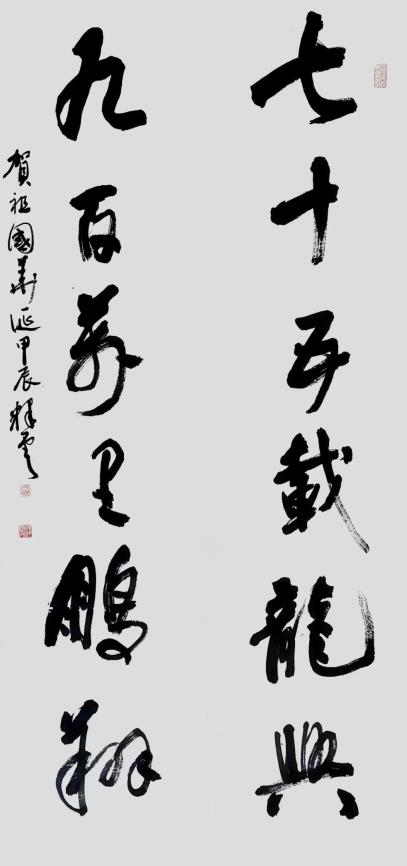 七十五载龍興
九百萬里鵬翔
賀祖國華诞甲辰輝雲